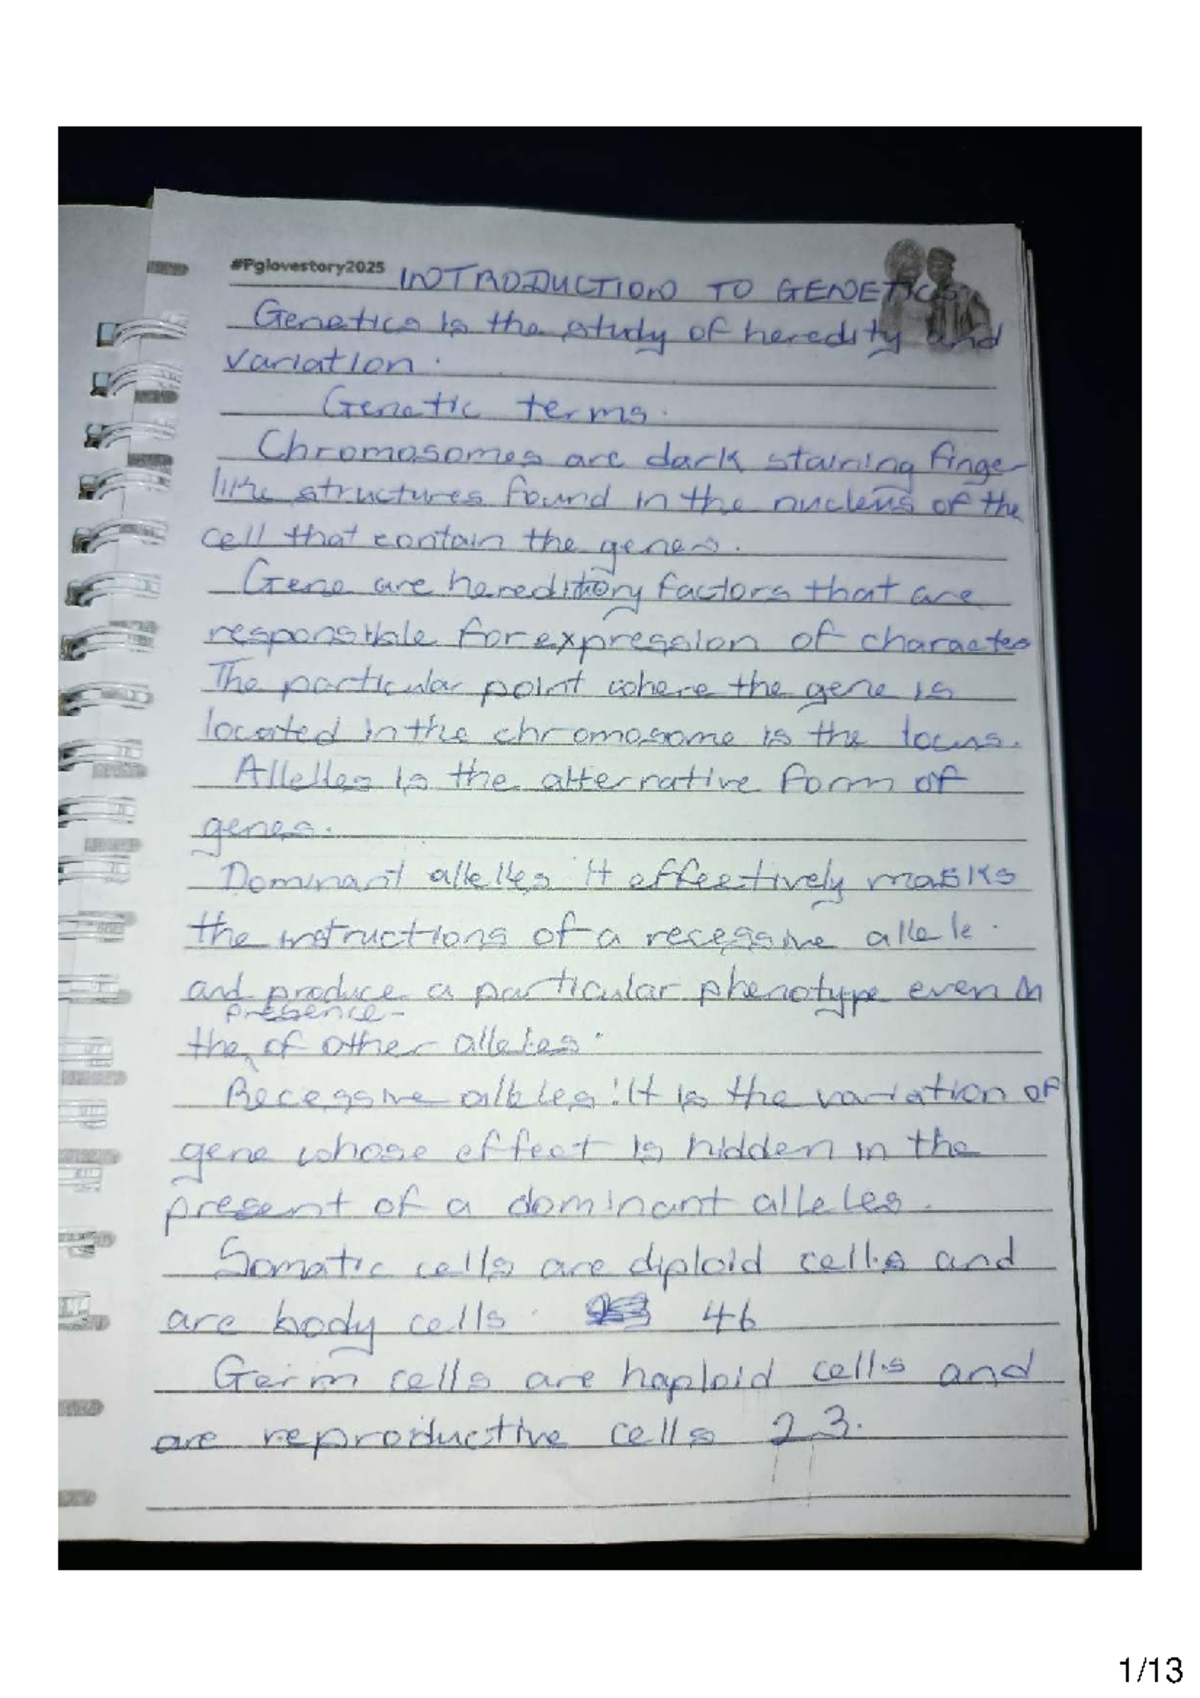 #Pglovestory2025 INTRODUCTION TO GENETICS
Genetics is the study of heredity and
variation.
Genetic terms.
Chromosomes are dark staining finge
like structures found in the nucleus of the
cell that contain the genes.
Gene are hereditory factors that are
responsible for expression of character
The particular point where the gene is
located in the chromosome is the locus.
Allelles is the alternative form of
genes.
Dominant allelles it effectively masks
the instructions of a recessive allele.
and produce a particular phenotype even in
presence
the of other alleles.
Recessive alleles: It is the variation of
gene whose effect is hidden in the
present of a dominant alleles.
Somatic cells are diploid cells and
are body cells. 46
Germ cells are haploid cells and
are reproductive cells 23.
1/13